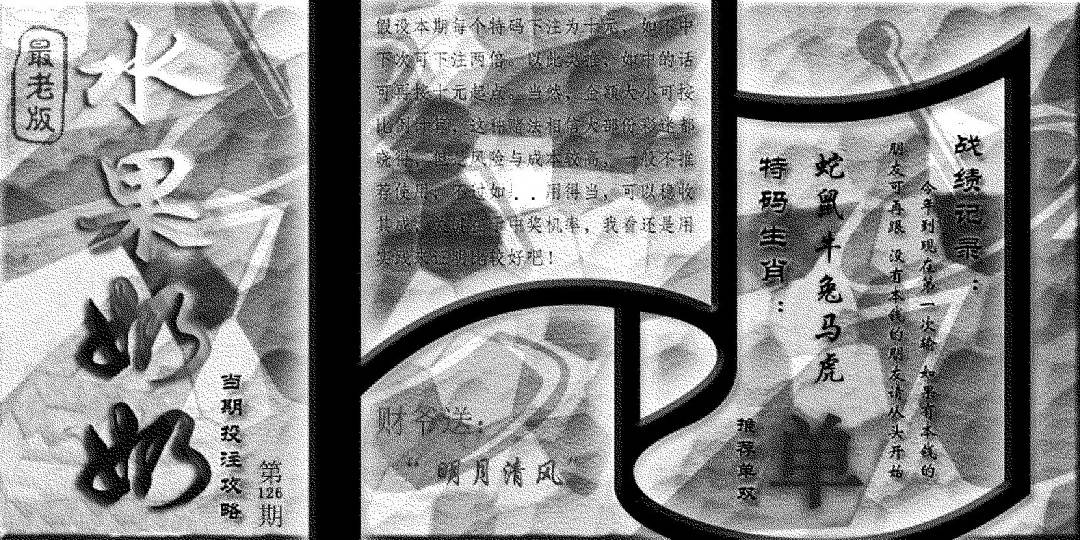 最老版
水果奶奶
当期投注攻略
第126期
假设本期每个特码下注为十元，如不中
下次可下注两倍。以此类推，如中的话
可再按十元起点。当然，金额大小可按
比例
这种赌法相信大部份彩迷都
晓得，但
风险与成本较高，一般不推
荐使用，不过如
用得当，可以稳收
其成
中奖机率，我看还是用
比较好吧！
财爷送：
“明月清风”
战绩记录：
今年到现在第一次输 如果有本钱的
朋友可再跟 没有本钱的朋友请从头开始
特码生肖：
蛇鼠牛兔马虎
推荐单双
单